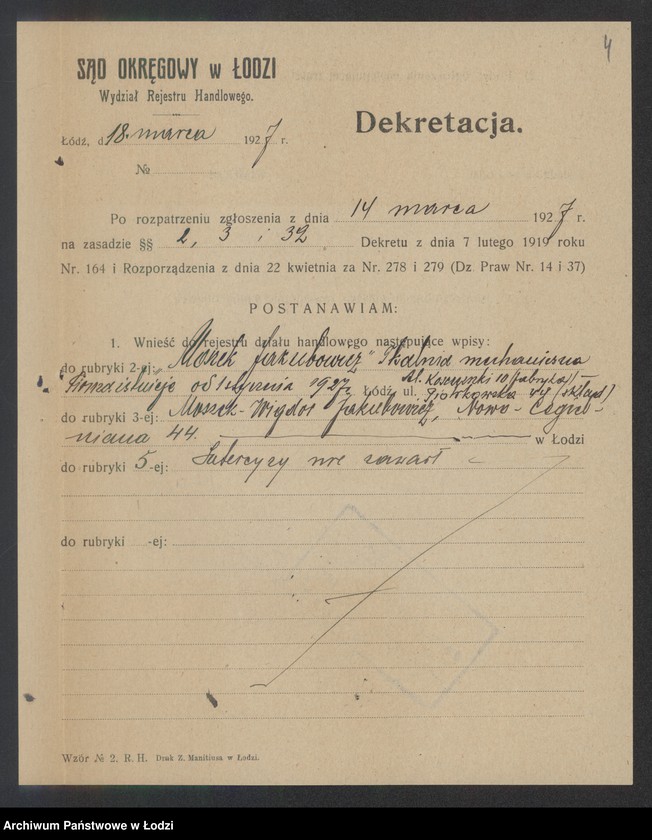 4
SĄD OKRĘGOWY w ŁODZI
Wydział Rejestru Handlowego.
Dekretacja.
Łódź, d. 18. marca 1927 r.
№
Po rozpatrzeniu zgłoszenia z dnia 14 marca 1927 r.
na zasadzie §§ 2, 3 i 32 Dekretu z dnia 7 lutego 1919 roku
Nr. 164 i Rozporządzenia z dnia 22 kwietnia za Nr. 278 i 279 (Dz. Praw Nr. 14 i 37)
POSTANAWIAM:
1. Wnieść do rejestru działu handlowego następujące wpisy:
do rubryki 2-ej: „Moszek Jakubowicz" Tkalnia mechaniczna
Firma istnieje od 1 stycznia 1927 r. Łódź, ul. Al. Kościuszki 10 (fabryka) i
Piotrkowska 44 (skład)
do rubryki 3-ej: Moszek-Wigdor Jakubowicz, Nowo-Cegiel-
niana 44. w Łodzi
do rubryki 5-ej: Intercyzy nie zawarł
do rubryki -ej:
Wzór № 2. R. H. Druk Z. Manitiusa w Łodzi.
Archiwum Państwowe w Łodzi